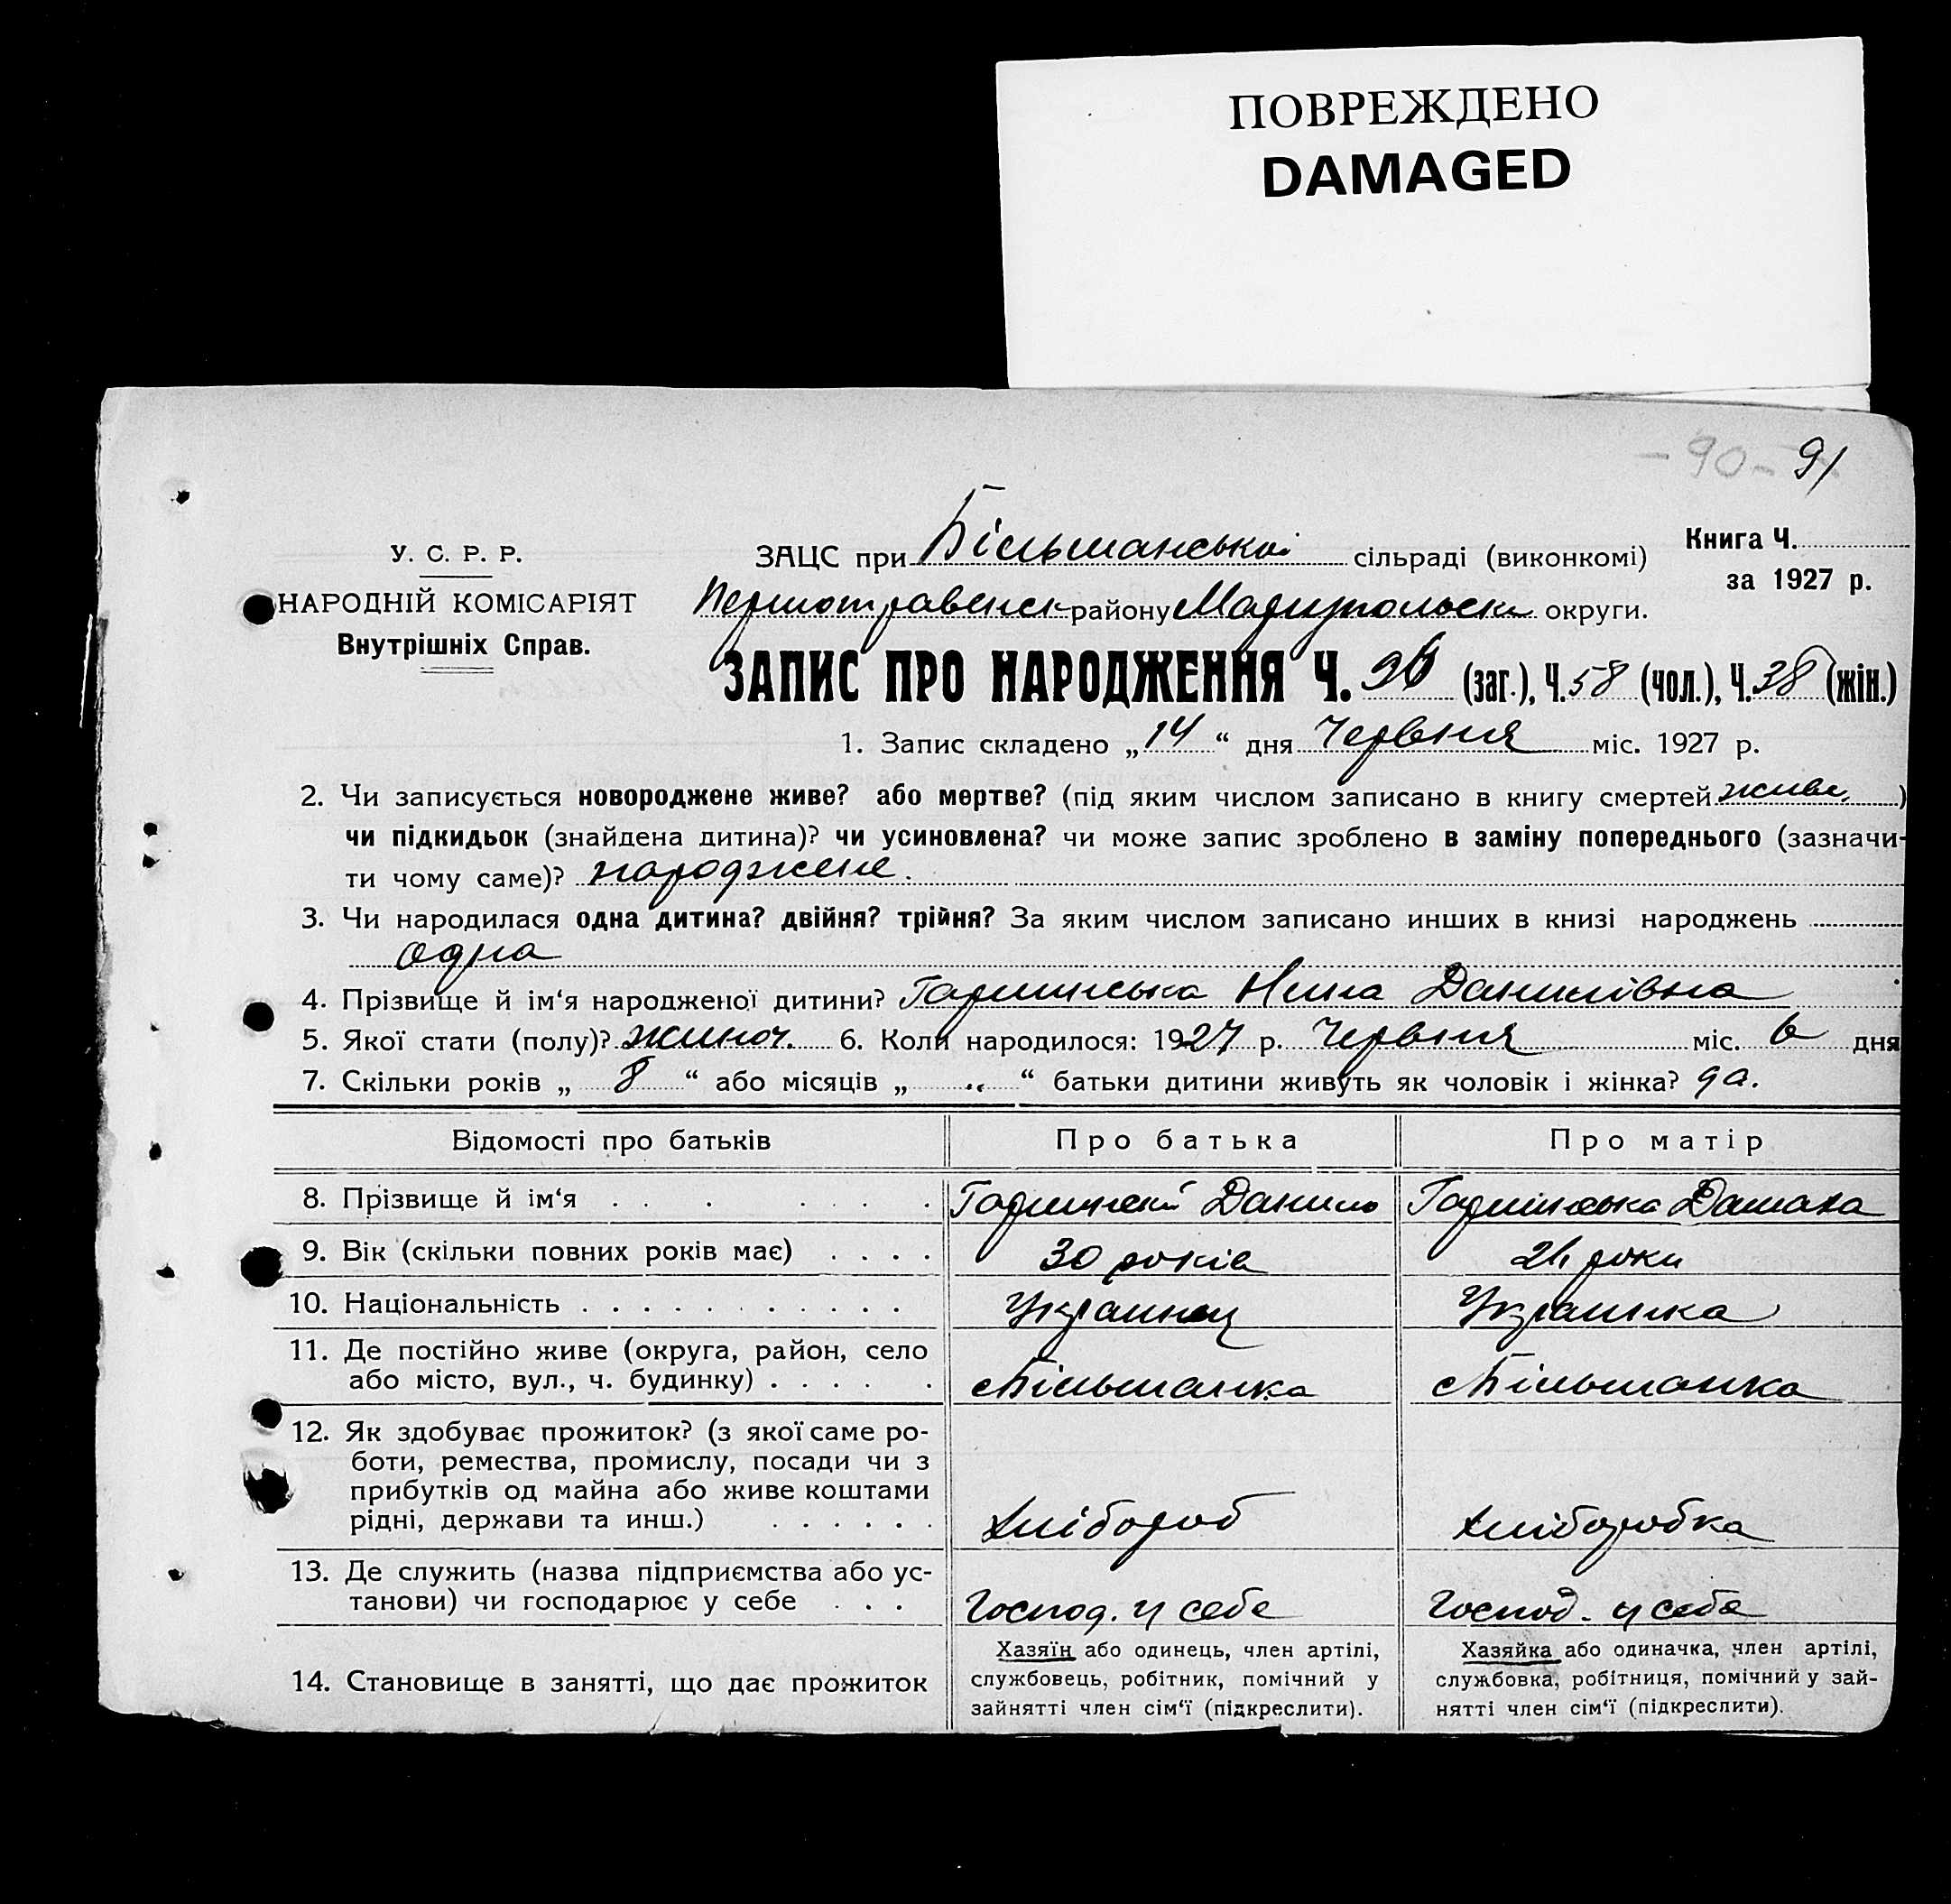 ПОВРЕЖДЕНО
DAMAGED
-90- 91
У. С. Р. Р.
НАРОДНІЙ КОМІСАРІЯТ
Внутрішніх Справ.
ЗАЦС при Більманській сільраді (виконкомі)
Книга Ч.
за 1927 р.
Першотравенск району Маріупольськ округи.
ЗАПИС ПРО НАРОДЖЕННЯ Ч. 96 (заг.), Ч. 58 (чол.), Ч. 38 (жін.)
1. Запис складено „14“ дня Червня міс. 1927 р.
2. Чи записується новороджене живе? або мертве? (під яким числом записано в книгу смертей живе )
чи підкидьок (знайдена дитина)? чи усиновлена? чи може запис зроблено в заміну попереднього (зазначи-
ти чому саме)? народжене.
3. Чи народилася одна дитина? двійня? трійня? За яким числом записано инших в книзі народжень
одна
4. Прізвище й ім‘я народженої дитини? Гаршинська Нина Данилівна
5. Якої стати (полу)? жиноч. 6. Коли народилося: 1927 р. Червня міс. 6 дня
7. Скільки років „ 8 “ або місяців „ .. “ батьки дитини живуть як чоловік і жінка? да.
Відомості про батьків Про батька Про матір
8. Прізвище й ім‘я Данило
9. Вік (скільки повних років має) 30 років 24 роки
10. Національність Украинец Украинка
11. Де постійно живе (округа, район, село
або місто, вул., ч. будинку) Більманка Більманка
12. Як здобуває прожиток? (з якої саме ро-
боти, ремества, промислу, посади чи з
прибутків од майна або живе коштами
рідні, держави та инш.) Хлібороб Хлiборобка
13. Де служить (назва підприємства або ус-
танови) чи господарює у себе Господ. у себе Господ. у себе
14. Становище в занятті, що дає прожиток
Хазяїн або одинець, член артілі,
службовець, робітник, помічний у
зайнятті член сім‘ї (підкреслити).
Хазяйка або одиначка, член артілі,
службовка, робітниця, помічний у зай-
нятті член сім‘ї (підкреслити).